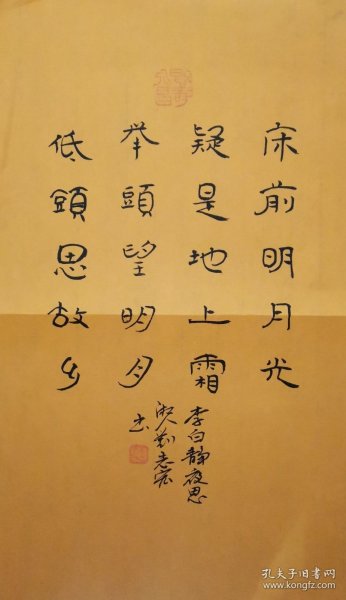 床前明月光
疑是地上霜
举頭望明月
低頭思故乡
李白静夜思
劉志宏
书
孔夫子旧书网